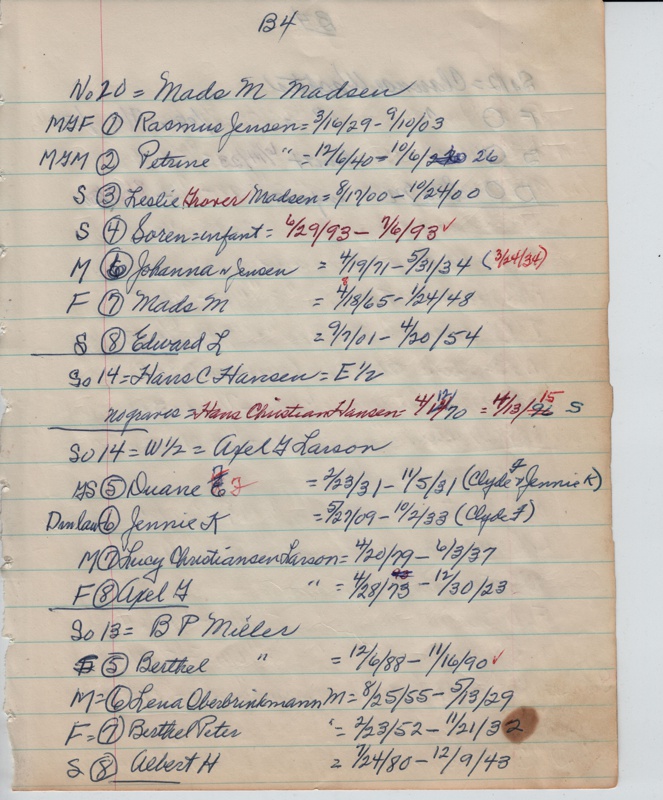 B4
No 20 = Mads M Madsen
MGF ① Rasmus Jensen = 3/16/29 - 9/10/03
MGM ② Petrine " = 12/6/40 = 10/6/26
S ③ Leslie Grover Madsen = 8/17/00 - 10/24/00
S ④ Soren = infant = 6/29/93 - 7/6/93 ✓
M ⑥ Johanna n Jensen = 4/19/71 - 5/31/34 (3/24/34)
F ⑦ Mads M = /18/65 - 1/24/48
S ⑧ Edward L = 9/7/01 - 4/20/54
So 14 = Hans C Hansen = E 1/2
no graves = Hans Christian Hansen = 4/ /70 = 4/13/15 S
So 14 = W 1/2 = Axel G Larson
GS ⑤ Duane F = 2/23/31 - 11/5/31 (Clyde F & Jennie K)
Dinlaw ⑥ Jennie K = 5/27/09 - 10/2/33 (Clyde F)
M ⑦ Lucy Christiansen Larson = 4/20/79 - 6/3/37
F ⑧ Axel G " = 4/28/73 - 12/30/23
So 13 = B P Miller
⑤ Berthel " = 12/6/88 - 11/16/90 ✓
M = ⑥ Lena Oberbrinkmann M = 8/25/55 - 5/13/29
F = ⑦ Berthel Peter " = 2/23/52 - 11/21/32
S ⑧ Albert H = 7/24/80 - 12/9/43